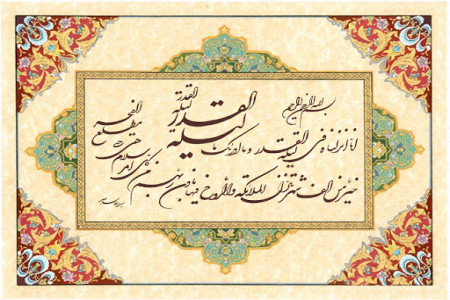 بسم الله الرحمن الرحیم
انا انزلناه فی لیلة القدر وما ادریک ما لیلة القدر لیلة القدر
خیر من الف شهر تنزل الملائکة والروح فیها باذن ربهم
من کل امر سلام هی حتی مطلع الفجر